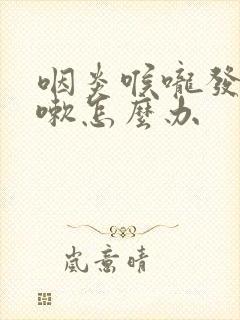 咽炎喉嚨發
嗽怎麼办
岚意晴